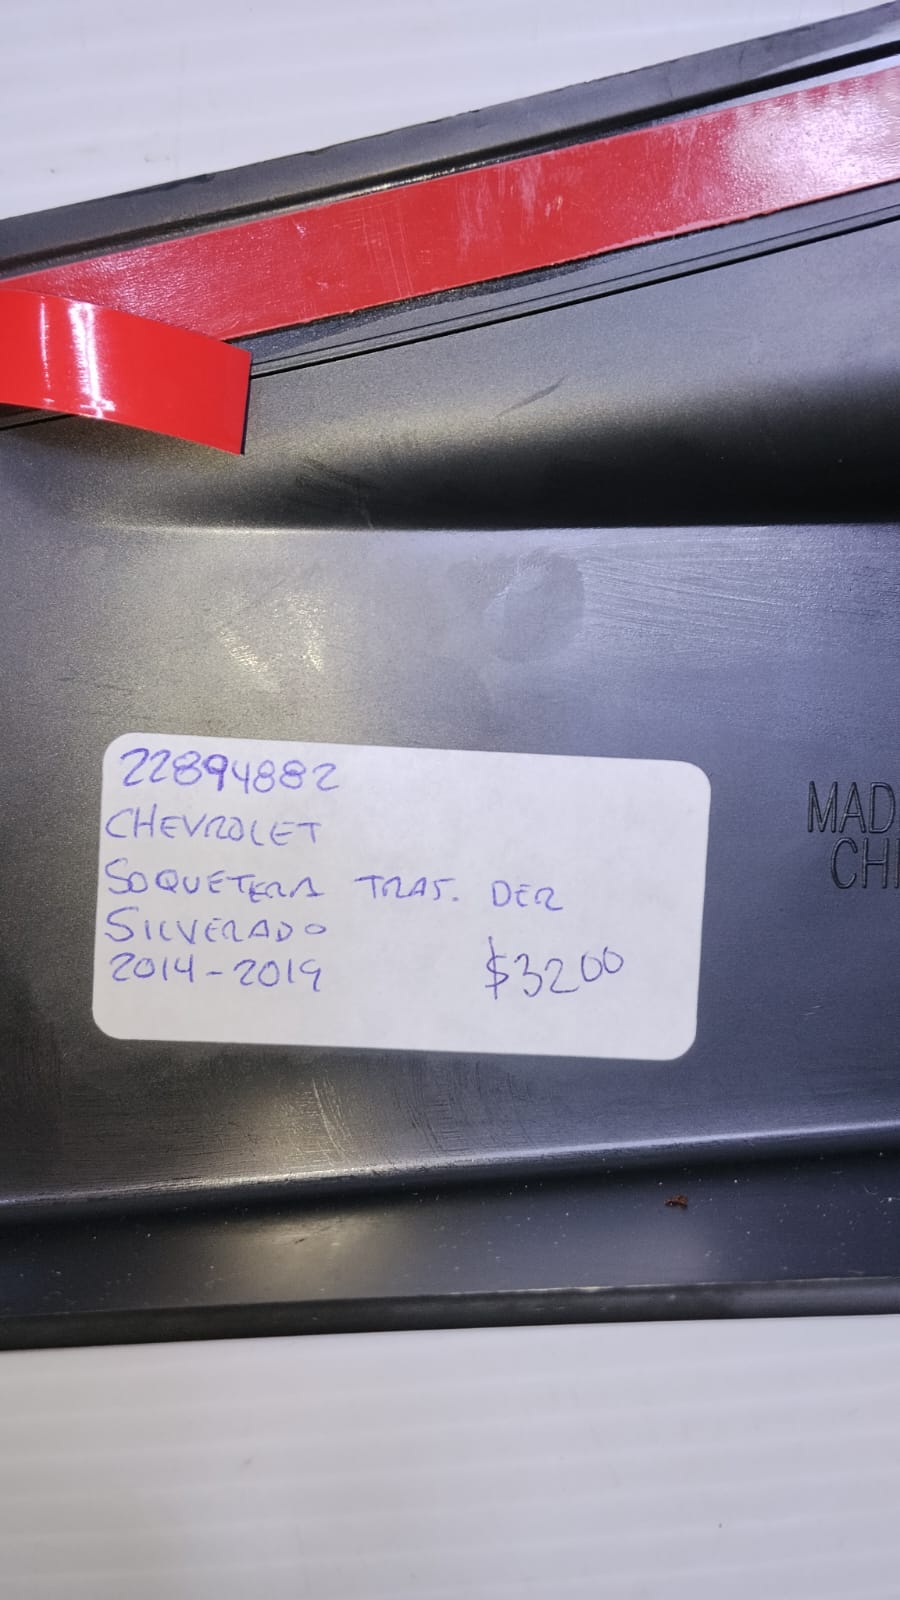 22894882
CHEVROLET
SOQUETERA TRAS. DER
SILVERADO
2014-2019 $3200
MAD
CHI